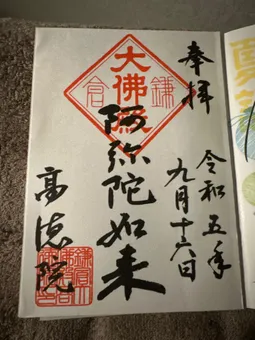 奉拝
令和五年
九月十六日
大佛殿
鎌倉
阿弥陀如来
高徳院